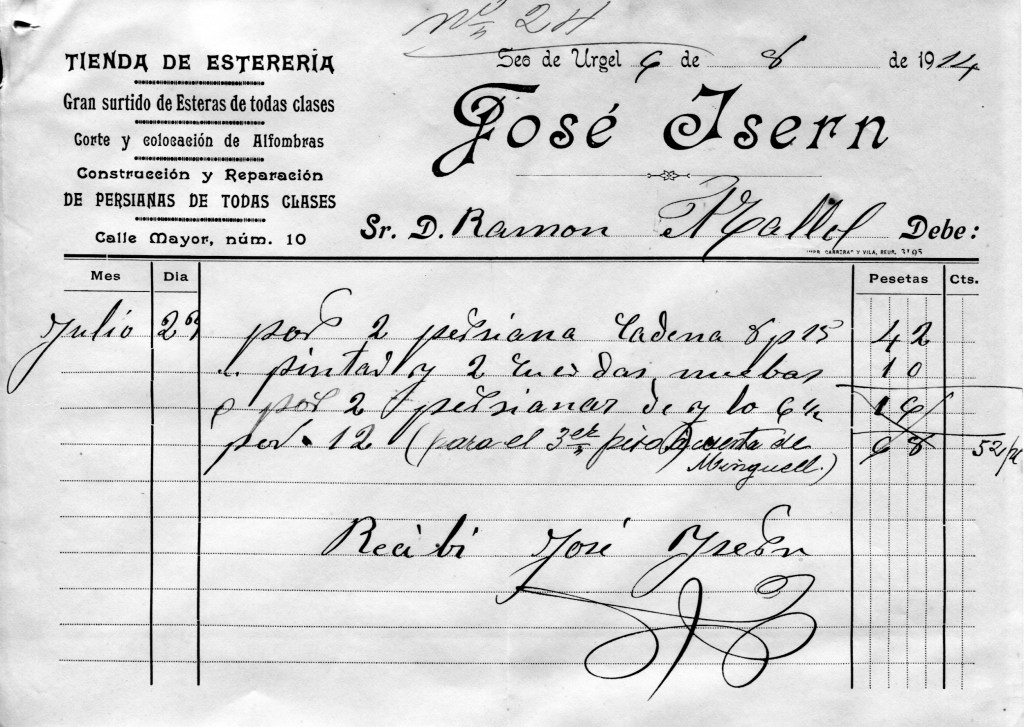 Nº 24
TIENDA DE ESTERERÍA
Gran surtido de Esteras de todas clases
Corte y colocación de Alfombras
Construcción y Reparación
DE PERSIANAS DE TODAS CLASES
Calle Mayor, núm. 10
Seo de Urgel 6 de 8 de 1914
José Isern
Sr. D. Ramon Mallol Debe:
IMP. CARRERA Y VILA, SEUR.
Mes Dia Pesetas Cts.
Julio por 2 persiana Cadena 42
pintad y 2 cuerdas nuebas 10
por 2 persianas de 16
por 12 (para el 3er piso cuenta de Minguell.) 68 52
Recibi José Isern